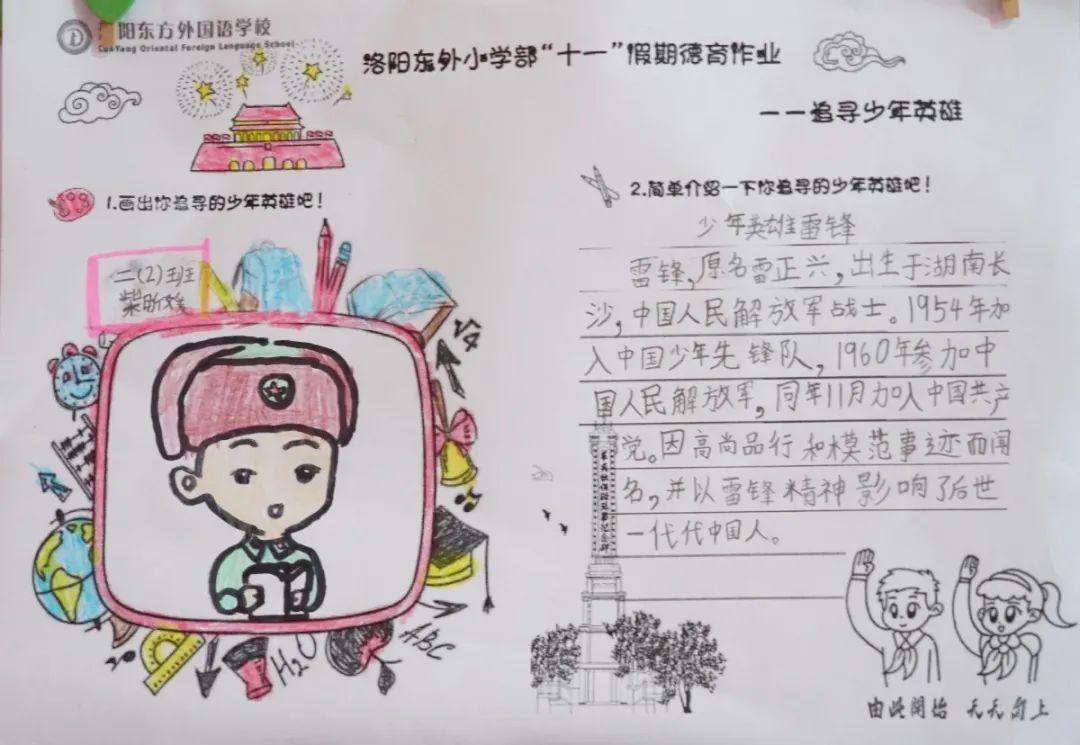 阳东方外国语学校
LuoYang Oriental Foreign Language School
洛阳东外小学部“十一”假期德育作业
——追寻少年英雄
1.画出你追寻的少年英雄吧！
2.简单介绍一下你追寻的少年英雄吧！
二(2)班
柴昕
少年英雄雷锋
雷锋，原名雷正兴，出生于湖南长
沙，中国人民解放军战士。1954年加
入中国少年先锋队，1960年参加中
国人民解放军，同年11月加入中国共产
党。因高尚品行和模范事迹而闻
名，并以雷锋精神影响了后世
一代代中国人。
√4
ABC
H2O
由此开始 天天向上